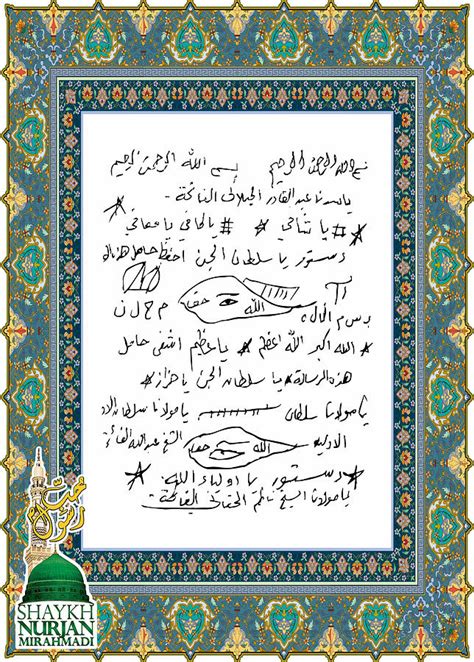 بسم الله الرحمن الرحيم بسم الله الرحمن الرحيم
يا سيدنا عبد القادر الجيلاني الفاتحة -
* يا شافي # # يا كافي يا معافي
دستور يا سلطان الجن احفظ حامل هذه
الله حق
م ح ل ن
* الله اكبر الله اعظم * يا عظيم اشفي حامل
هذه الرسالة * يا سلطان الجن يا
يا مولانا سلطان يا مولانا سلطان الاو
الاولياء الله حق الشيخ عبد الله الفا
* دستور يا اولياء الله *
يا مولانا الشيخ ناظم الحقاني الفاتحة
SHAYKH
NURJAN
MIRAHMADI